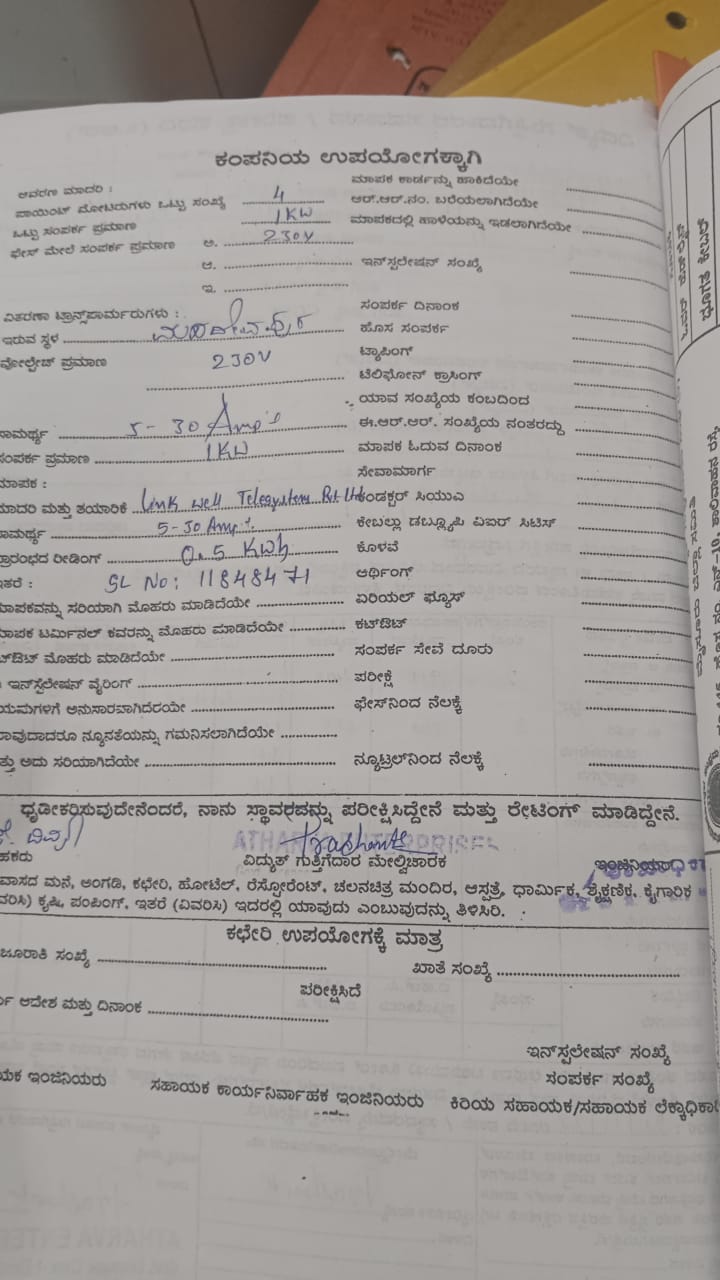 ಕಂಪನಿಯ ಉಪಯೋಗಕ್ಕಾಗಿ
ಆವರಣ ಮಾದರಿ : ಮಾಪಕ ಕಾರ್ಡನ್ನು ಹಾಕಿದೆಯೇ
ಪಾಯಿಂಟ್ ಮೋಟರುಗಳು ಒಟ್ಟು ಸಂಖ್ಯೆ 4 ಆರ್.ಆರ್.ನಂ. ಬರೆಯಲಾಗಿದೆಯೇ
ಒಟ್ಟು ಸಂಪರ್ಕ ಪ್ರಮಾಣ 1KW ಮಾಪಕದಲ್ಲಿ ಹಾಳೆಯನ್ನು ಇಡಲಾಗಿದೆಯೇ
ಫೇಸ್ ಮೇಲೆ ಸಂಪರ್ಕ ಪ್ರಮಾಣ ಅ. 230V
ಆ. ಇನ್‌ಸ್ಟಲೇಷನ್ ಸಂಖ್ಯೆ
ಇ.
ವಿತರಣಾ ಟ್ರಾನ್ಸ್‌ಫಾರ್ಮರುಗಳು : ಸಂಪರ್ಕ ದಿನಾಂಕ
ಇರುವ ಸ್ಥಳ ಹೊಸ ಸಂಪರ್ಕ
ವೋಲ್ಟೇಜ್ ಪ್ರಮಾಣ 230V ಟ್ಯಾಪಿಂಗ್
ಟೆಲಿಫೋನ್ ಕ್ರಾಸಿಂಗ್
ಯಾವ ಸಂಖ್ಯೆಯ ಕಂಬದಿಂದ
ಸಾಮರ್ಥ್ಯ 5-30 Amp's ಈ.ಆರ್.ಆರ್. ಸಂಖ್ಯೆಯ ನಂತರದ್ದು
ಸಂಪರ್ಕ ಪ್ರಮಾಣ 1KW ಮಾಪಕ ಓದುವ ದಿನಾಂಕ
ಮಾಪಕ : ಸೇವಾಮಾರ್ಗ
ಮಾದರಿ ಮತ್ತು ತಯಾರಿಕೆ Link Well Telesystem Pvt Ltd ಕಂಡಕ್ಟರ್ ಸಿಯುಎ
ಸಾಮರ್ಥ್ಯ 5-30 Amp's ಕೇಬಲ್ಲು ಡಬ್ಲ್ಯೂಪಿ ವಿಐರ್ ಸಿಟಿಸ್
ಪ್ರಾರಂಭದ ರೀಡಿಂಗ್ 0.5 KWh ಕೊಳವೆ
ಇತರೆ : SL No: 11848471 ಅರ್ಥಿಂಗ್
ಮಾಪಕವನ್ನು ಸರಿಯಾಗಿ ಮೊಹರು ಮಾಡಿದೆಯೇ ಏರಿಯಲ್ ಫ್ಯೂಸ್
ಮಾಪಕ ಟರ್ಮಿನಲ್ ಕವರನ್ನು ಮೊಹರು ಮಾಡಿದೆಯೇ ಕಟ್‌ಔಟ್
ಕಟ್‌ಔಟ್ ಮೊಹರು ಮಾಡಿದೆಯೇ ಸಂಪರ್ಕ ಸೇವೆ ದೂರು
ಇನ್‌ಸ್ಟಲೇಷನ್ ವೈರಿಂಗ್ ಪರೀಕ್ಷೆ
ಯಮಗಳಿಗೆ ಅನುಸಾರವಾಗಿದೆಯೇ ಫೇಸ್‌ನಿಂದ ನೆಲಕ್ಕೆ
ಯಾವುದಾದರೂ ನ್ಯೂನತೆಯನ್ನು ಗಮನಿಸಲಾಗಿದೆಯೇ
ಮತ್ತು ಅದು ಸರಿಯಾಗಿದೆಯೇ ನ್ಯೂಟ್ರಲ್‌ನಿಂದ ನೆಲಕ್ಕೆ
ಧೃಡೀಕರಿಸುವುದೇನೆಂದರೆ, ನಾನು ಸ್ಥಾವರವನ್ನು ಪರೀಕ್ಷಿಸಿದ್ದೇನೆ ಮತ್ತು ರೇಟಿಂಗ್ ಮಾಡಿದ್ದೇನೆ.
ATHARVA ENTERPRISES Prashanth
ಹಕರು ವಿದ್ಯುತ್ ಗುತ್ತಿಗೆದಾರ ಮೇಲ್ವಿಚಾರಕ ಇಂಜಿನಿಯರ
ವಾಸದ ಮನೆ, ಅಂಗಡಿ, ಕಛೇರಿ, ಹೋಟೆಲ್, ರೆಸ್ಟೋರೆಂಟ್, ಚಲನಚಿತ್ರ ಮಂದಿರ, ಆಸ್ಪತ್ರೆ, ಧಾರ್ಮಿಕ, ಶೈಕ್ಷಣಿಕ, ಕೈಗಾರಿಕ
ವರಿಸಿ) ಕೃಷಿ, ಪಂಪಿಂಗ್, ಇತರೆ (ವಿವರಿಸಿ) ಇದರಲ್ಲಿ ಯಾವುದು ಎಂಬುವುದನ್ನು ತಿಳಿಸಿರಿ.
ಕಛೇರಿ ಉಪಯೋಗಕ್ಕೆ ಮಾತ್ರ
ಜೂರಾತಿ ಸಂಖ್ಯೆ ಖಾತೆ ಸಂಖ್ಯೆ
ಪರೀಕ್ಷಿಸಿದೆ
ಆದೇಶ ಮತ್ತು ದಿನಾಂಕ
ಇನ್‌ಸ್ಪಲೇಷನ್ ಸಂಖ್ಯೆ
ಸಂಪರ್ಕ ಸಂಖ್ಯೆ
ಯಕ ಇಂಜಿನಿಯರು ಸಹಾಯಕ ಕಾರ್ಯನಿರ್ವಾಹಕ ಇಂಜಿನಿಯರು ಕಿರಿಯ ಸಹಾಯಕ/ಸಹಾಯಕ ಲೆಕ್ಕಾಧಿಕಾ